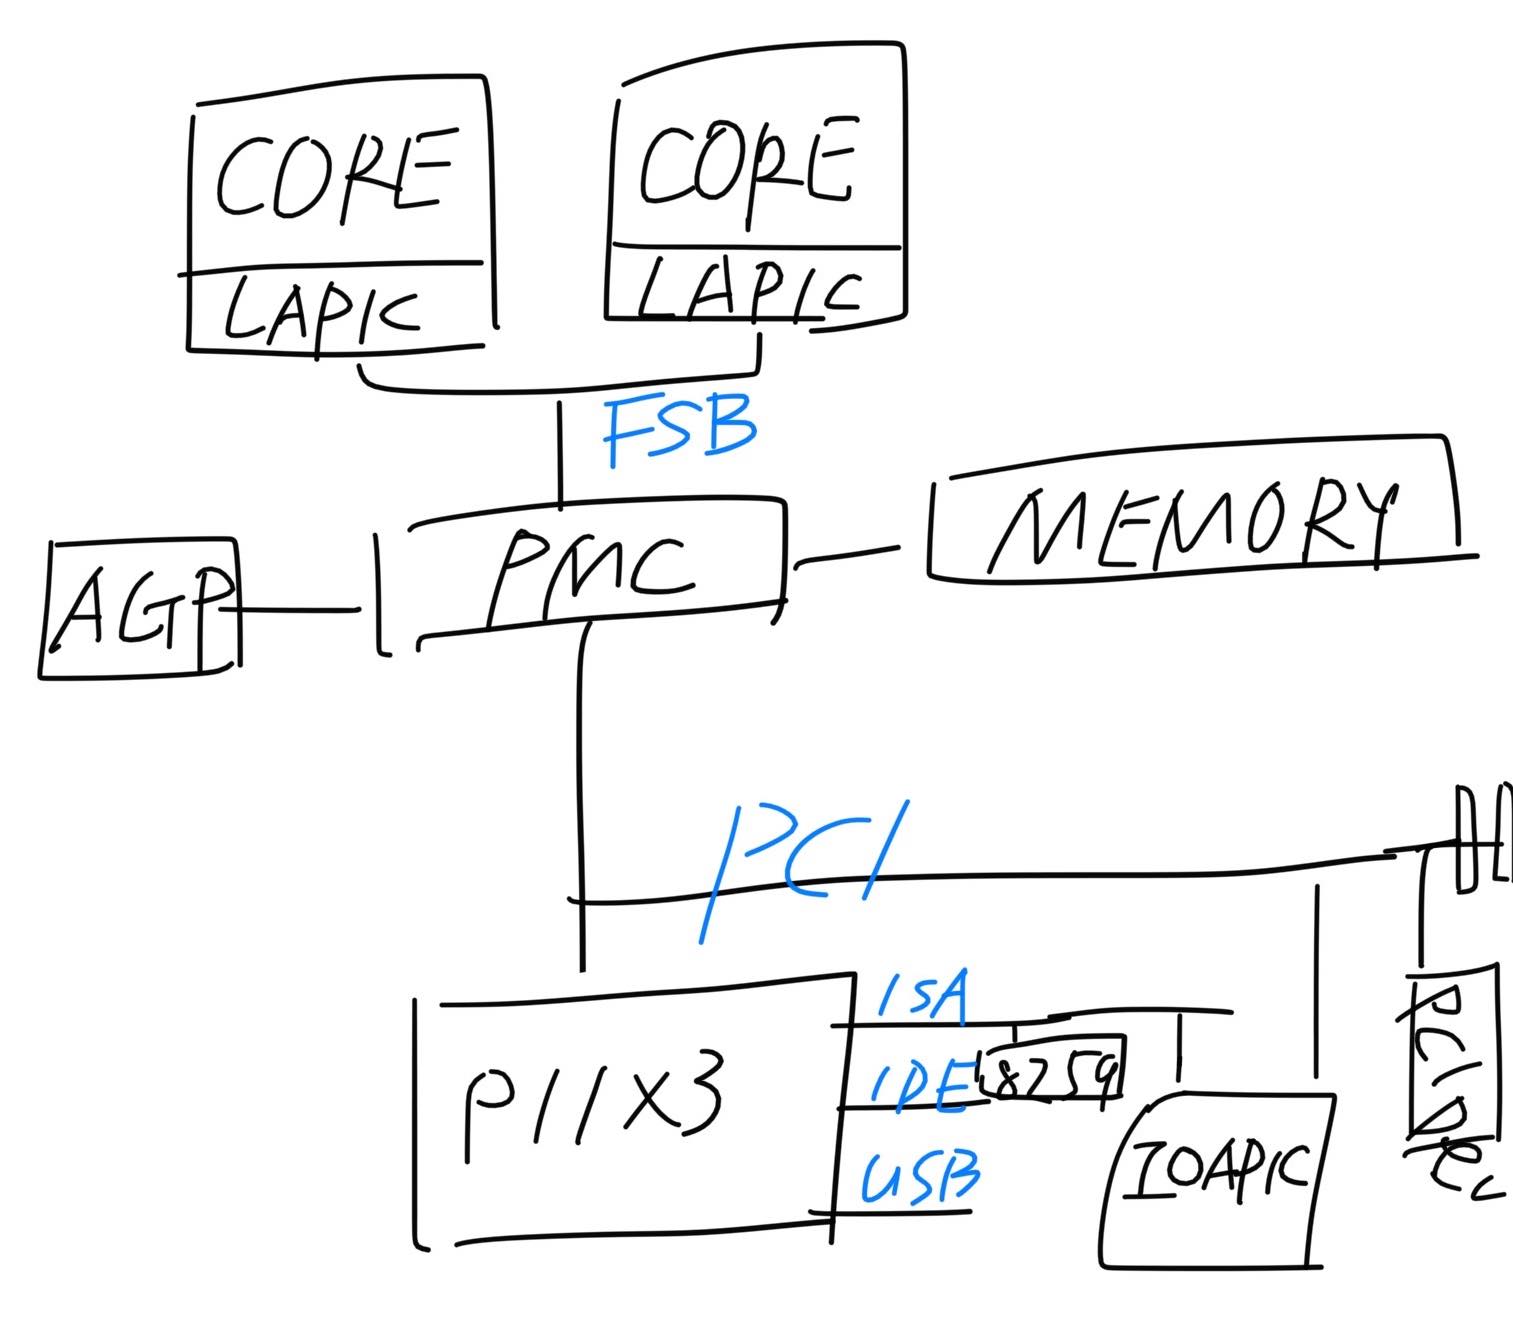 CORE
LAPIC
CORE
LAPIC
FSB
AGP
PMC
MEMORY
PCI
PIIX3
ISA
IDE
USB
8259
IOAPIC
PCI